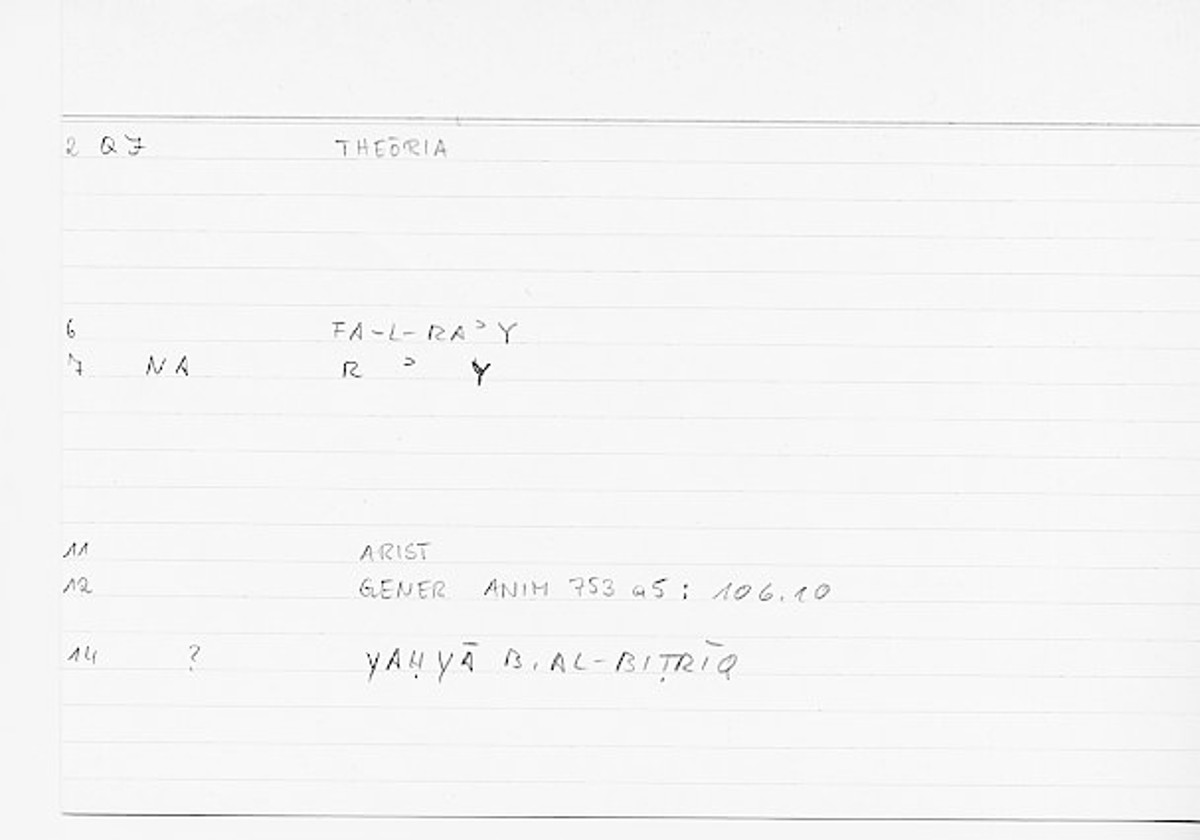 2 Q7 THEŌRIA
6 FA-L-RAʾY
7 NA R ʾ Y
11 ARIST
12 GENER ANIM 753 a5 : 106.10
14 ? YAḤYĀ B. AL-BIṬRĪQ